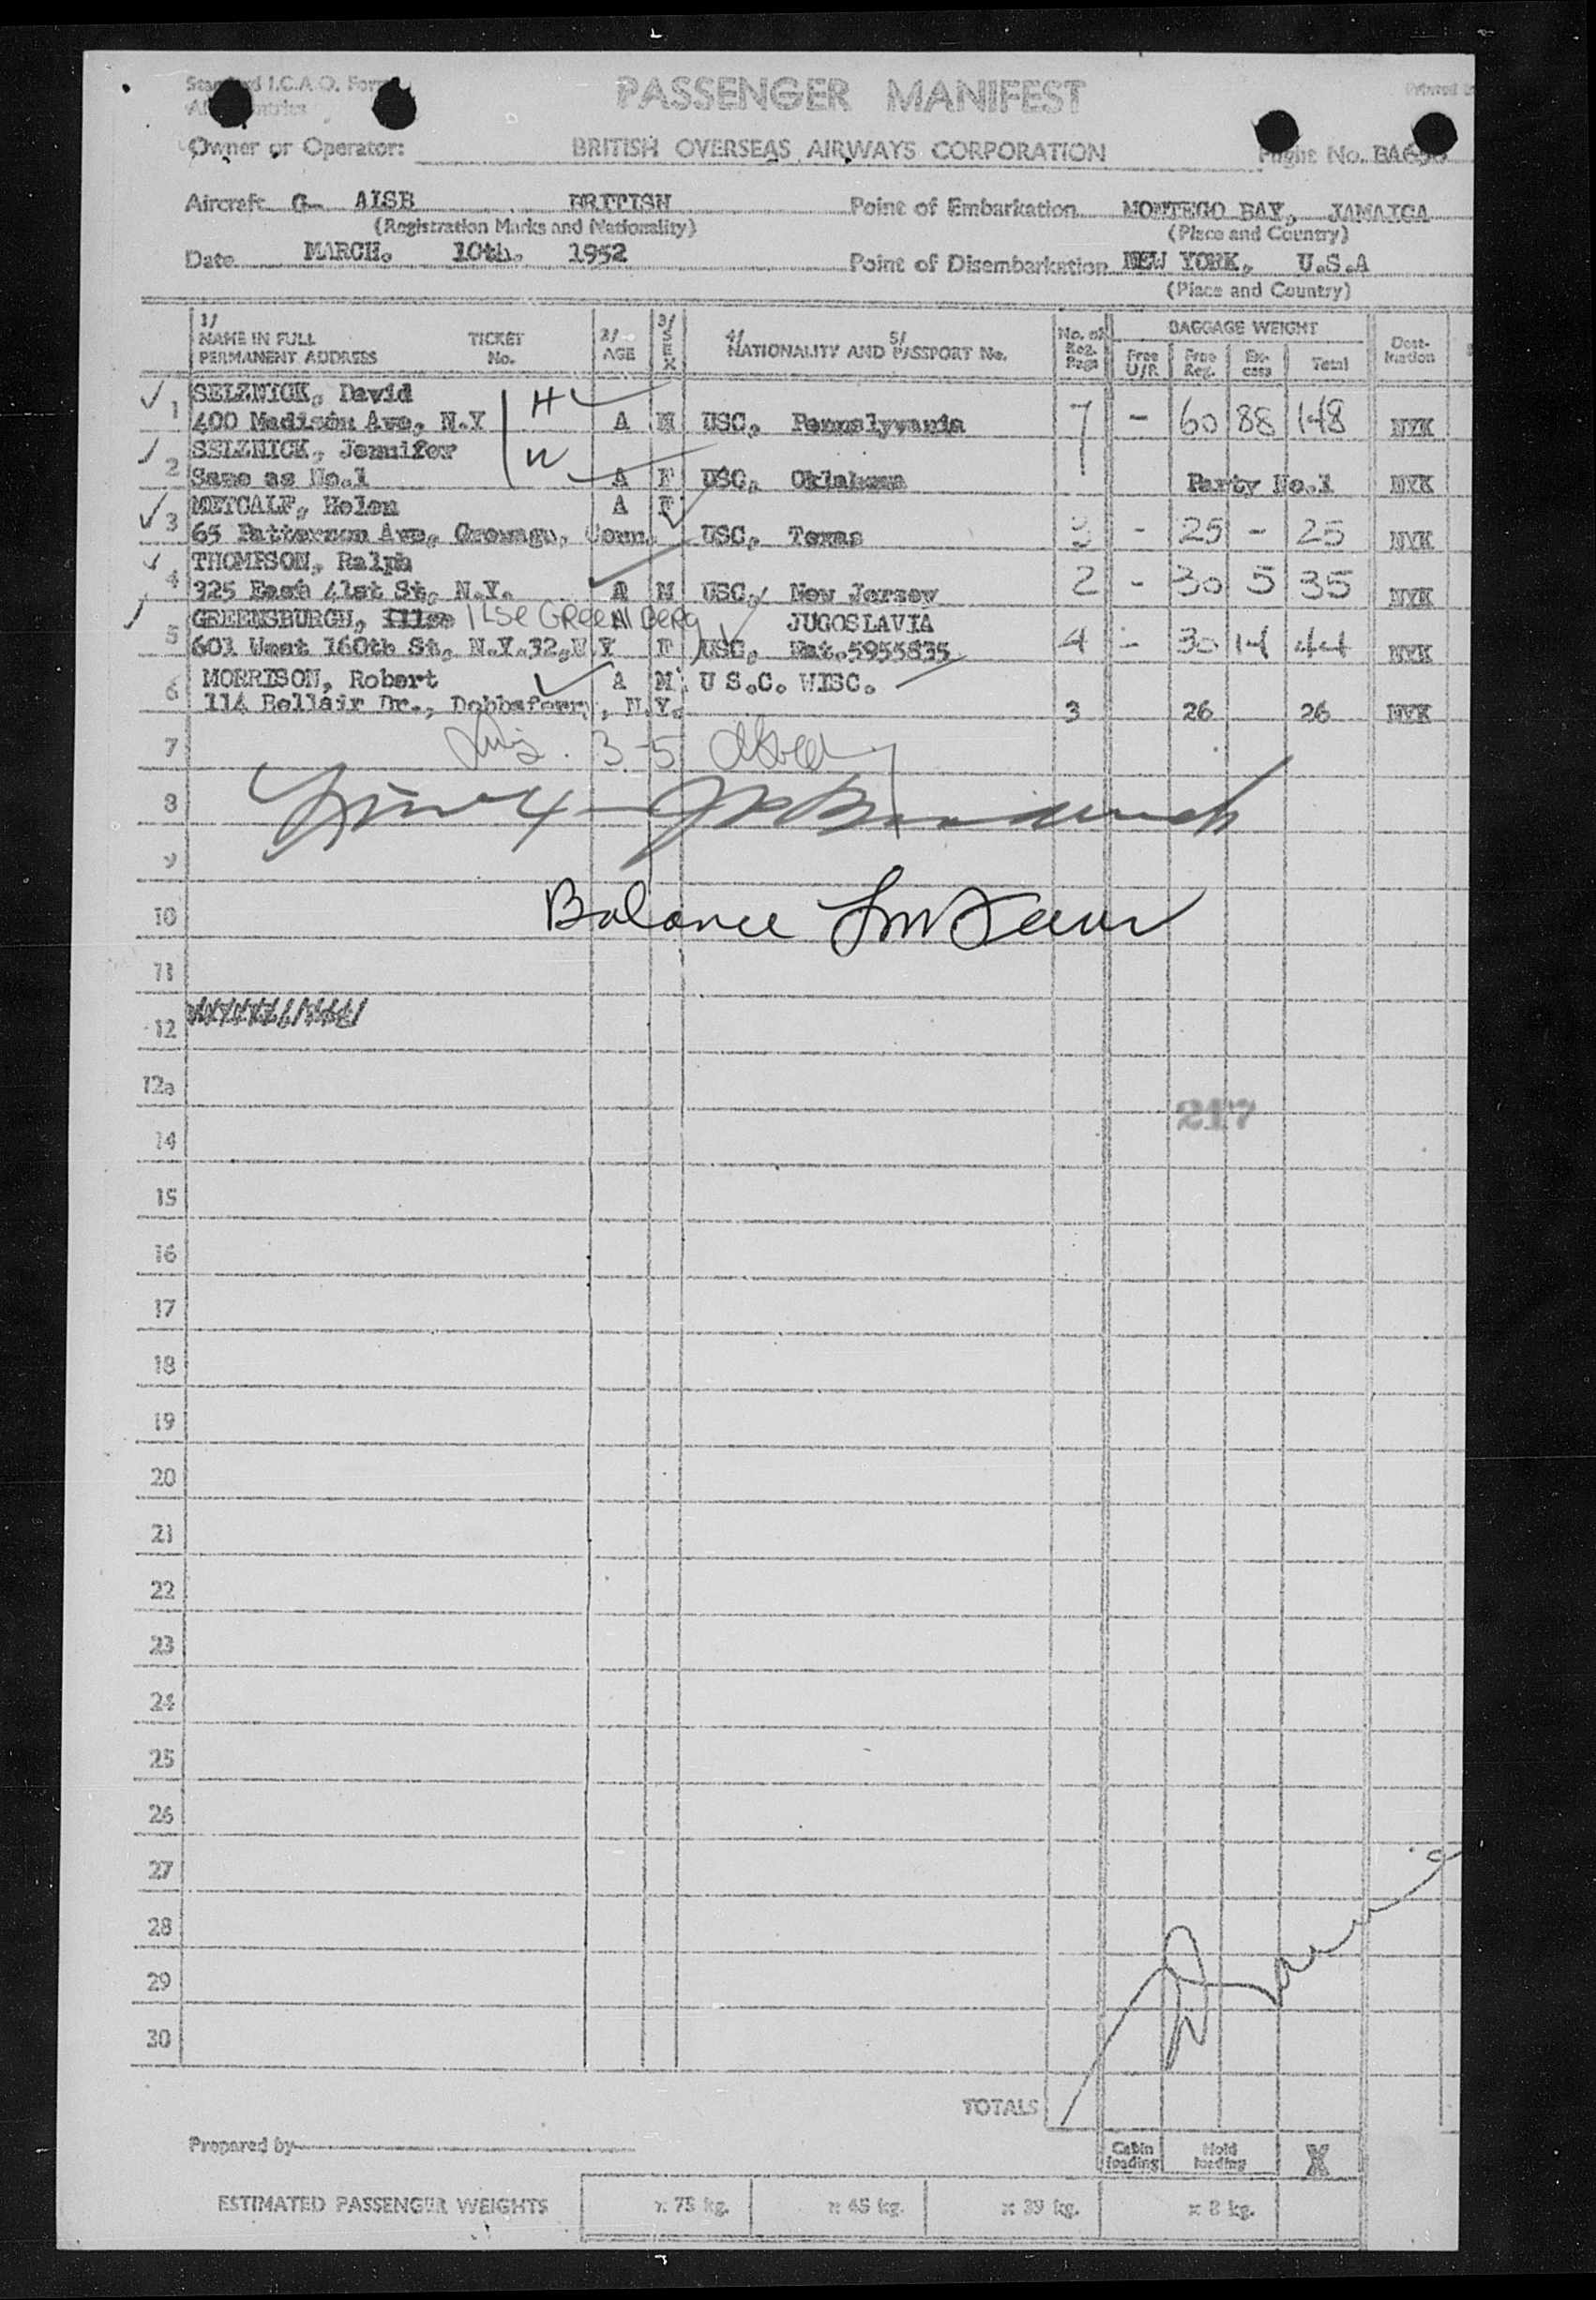 Standard I.C.A.O. Form
All Countries
PASSENGER MANIFEST
Printed in
Owner or Operator: BRITISH OVERSEAS AIRWAYS CORPORATION Flight No. BA
Aircraft G- AISB BRITISH Point of Embarkation MONTEGO BAY, JAMAICA
(Registration Marks and Nationality) (Place and Country)
Date MARCH. 10th. 1952 Point of Disembarkation NEW YORK, U.S.A
(Place and Country)
1/ NAME IN FULL PERMANENT ADDRESS TICKET No. 2/ AGE 3/ SEX 4/ 5/ NATIONALITY AND PASSPORT No. No. of Reg. Bags BAGGAGE WEIGHT Free U/R Free Reg. Ex-cess Total Dest-ination
SELZNICK, David H
1 400 Madison Ave, N.Y A M USC, Pennslyvania 7 - 60 88 148 NYK
SELZNICK, Jennifer W
2 Same as No.1 A F USC, Oklahoma Party No.1 NYK
METCALF, Helen A F
3 65 Patterson Ave, Conn. USC, Texas 3 - 25 - 25 NYK
THOMPSON, Ralph
4 325 East 41st St, N.Y. A M USC, New Jersey 2 - 30 5 35 NYK
GREENSBURGH, Illse ILSE GREENBERG A JUGOSLAVIA
5 601 West 160th St, N.Y.32,N.Y F USC, Nat.5955835 4 - 30 14 44 NYK
MORRISON, Robert A M U S.C. WISC.
6 114 Bellair Dr., Dobbsferry, N.Y. 3 26 26 NYK
7 3-5
8
9
10 Balance
11
12
12a
217
14
15
16
17
18
19
20
21
22
23
24
25
26
27
28
29
30
TOTALS
Prepared by
Cabin loading Hold loading X
ESTIMATED PASSENGER WEIGHTS x 75 kg. x 45 kg. x 39 kg. x 8 kg.